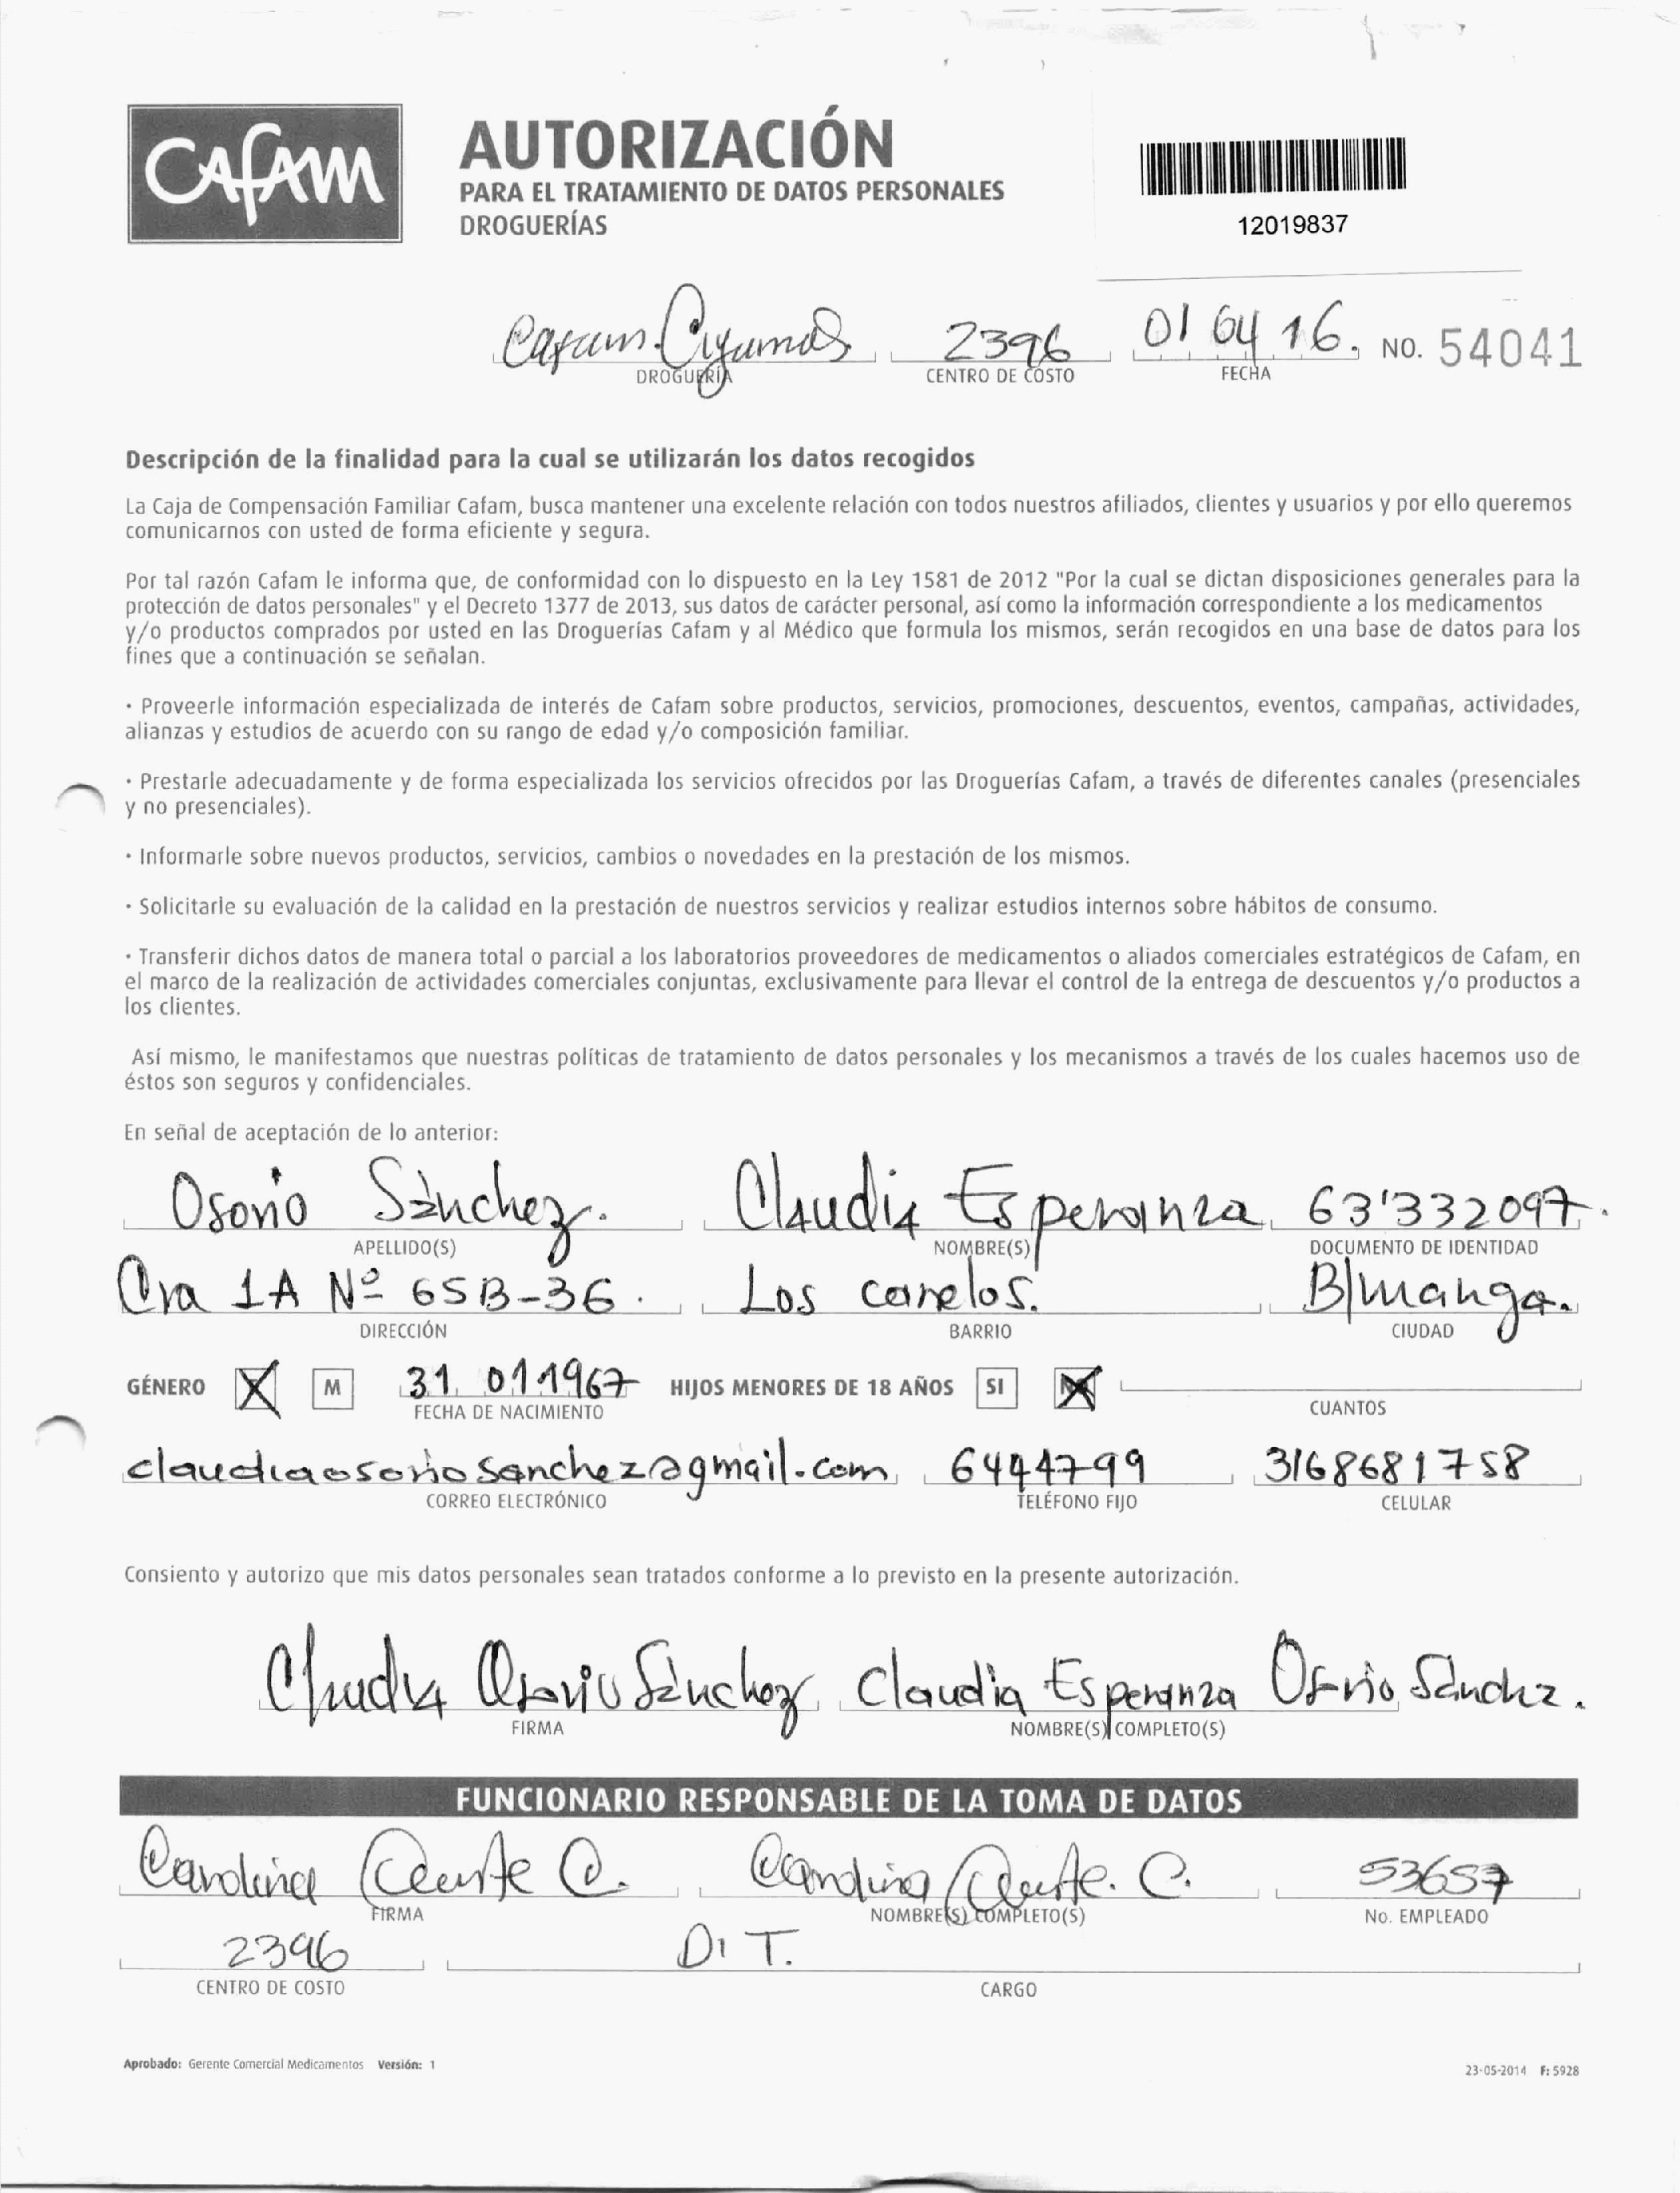 CAFAM
AUTORIZACIÓN
PARA EL TRATAMIENTO DE DATOS PERSONALES
DROGUERÍAS
12019837
Cafam 2396 01 04 16. NO. 54041
DROGUERÍA CENTRO DE COSTO FECHA
Descripción de la finalidad para la cual se utilizarán los datos recogidos
La Caja de Compensación Familiar Cafam, busca mantener una excelente relación con todos nuestros afiliados, clientes y usuarios y por ello queremos
comunicarnos con usted de forma eficiente y segura.
Por tal razón Cafam le informa que, de conformidad con lo dispuesto en la Ley 1581 de 2012 "Por la cual se dictan disposiciones generales para la
protección de datos personales" y el Decreto 1377 de 2013, sus datos de carácter personal, así como la información correspondiente a los medicamentos
y/o productos comprados por usted en las Droguerías Cafam y al Médico que formula los mismos, serán recogidos en una base de datos para los
fines que a continuación se señalan.
· Proveerle información especializada de interés de Cafam sobre productos, servicios, promociones, descuentos, eventos, campañas, actividades,
alianzas y estudios de acuerdo con su rango de edad y/o composición familiar.
· Prestarle adecuadamente y de forma especializada los servicios ofrecidos por las Droguerías Cafam, a través de diferentes canales (presenciales
y no presenciales).
· Informarle sobre nuevos productos, servicios, cambios o novedades en la prestación de los mismos.
· Solicitarle su evaluación de la calidad en la prestación de nuestros servicios y realizar estudios internos sobre hábitos de consumo.
· Transferir dichos datos de manera total o parcial a los laboratorios proveedores de medicamentos o aliados comerciales estratégicos de Cafam, en
el marco de la realización de actividades comerciales conjuntas, exclusivamente para llevar el control de la entrega de descuentos y/o productos a
los clientes.
Así mismo, le manifestamos que nuestras políticas de tratamiento de datos personales y los mecanismos a través de los cuales hacemos uso de
éstos son seguros y confidenciales.
En señal de aceptación de lo anterior:
Osorio Sánchez. Claudia Esperanza 63'332097.
APELLIDO(S) NOMBRE(S) DOCUMENTO DE IDENTIDAD
Cra 1A Nº 65B-36. Los canelos. B/manga.
DIRECCIÓN BARRIO CIUDAD
GÉNERO M 31 01 1967 HIJOS MENORES DE 18 AÑOS SI
FECHA DE NACIMIENTO CUANTOS
claudiaosoriosanchez@gmail.com 6444799 3168681758
CORREO ELECTRÓNICO TELÉFONO FIJO CELULAR
Consiento y autorizo que mis datos personales sean tratados conforme a lo previsto en la presente autorización.
Claudia Osorio Sánchez Claudia Esperanza Osorio Sánchez.
FIRMA NOMBRE(S) COMPLETO(S)
FUNCIONARIO RESPONSABLE DE LA TOMA DE DATOS
Carolina C. Carolina C. 53657
FIRMA NOMBRE(S) COMPLETO(S) No. EMPLEADO
2396 DIT.
CENTRO DE COSTO CARGO
Aprobado: Gerente Comercial Medicamentos Versión: 1
23-05-2014 F: 5928